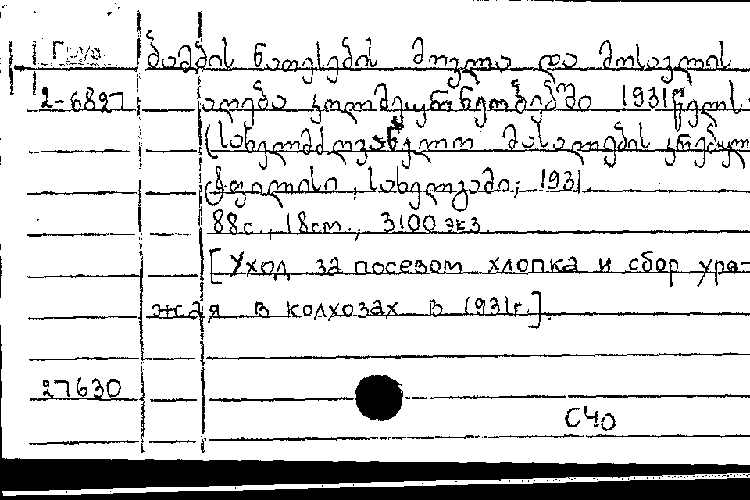 Груз.
ბამბის ნათესების მოვლა და მოსავლის
2-6827 აღება კოლმეურნეობებში 1931 წელს
(სახელმძღვანელო მასალების კრებული
ტფილისი, სახელგამი, 1931.
88с., 18cm., 3100 экз.
[Уход за посевом хлопка и сбор уро-
жая в колхозах в 1931г.].
27630
СЧО